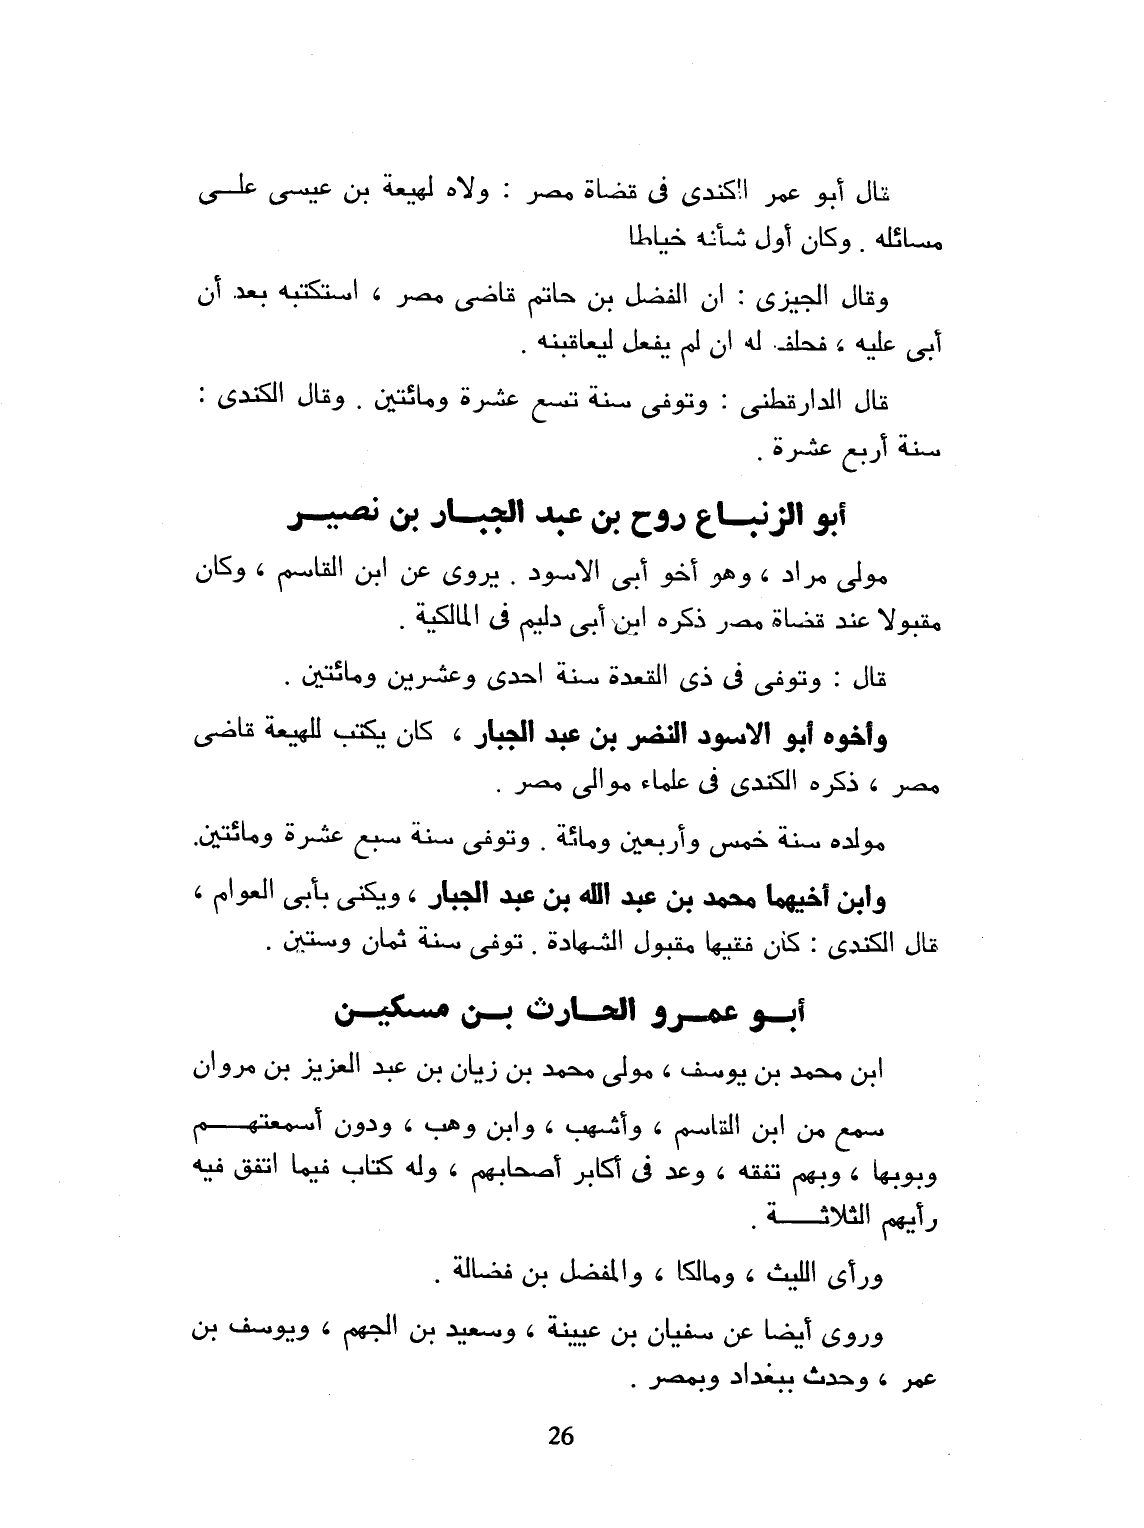 قال أبو عمر الكندى فى قضاة مصر : ولاه لهيعة بن عيسى علـــى
مسائله . وكان أول شأنه خياطا
وقال الجيزى : ان الفضل بن حاتم قاضى مصر ، استكتبه بعد أن
أبى عليه ، فحلف له ان لم يفعل ليعاقبنه .
قال الدارقطنى : وتوفى سنة تسع عشرة ومائتين . وقال الكندى :
سنة أربع عشرة .
أبو الزنبـــاع روح بن عبد الجبــار بن نصيـــر
مولى مراد ، وهو أخو أبى الاسود . يروى عن ابن القاسم ، وكان
مقبولا عند قضاة مصر ذكره ابن أبى دليم فى المالكية .
قال : وتوفى فى ذى القعدة سنة احدى وعشرين ومائتين .
وأخوه أبو الاسود النضر بن عبد الجبار ، كان يكتب للهيعة قاضى
مصر ، ذكره الكندى فى علماء موالى مصر .
مولده سنة خمس وأربعين ومائة . وتوفى سنة سبع عشرة ومائتين.
وابن أخيهما محمد بن عبد الله بن عبد الجبار ، ويكنى بأبى العوام ،
قال الكندى : كان فقيها مقبول الشهادة . توفى سنة ثمان وستين .
أبـــو عمـــرو الحـــارث بـــن مسكيـــن
ابن محمد بن يوسف ، مولى محمد بن زيان بن عبد العزيز بن مروان
سمع من ابن القاسم ، وأشهب ، وابن وهب ، ودون أسمعتهـــــم
وبوبها ، وبهم تفقه ، وعد فى أكابر أصحابهم ، وله كتاب فيما اتفق فيه
رأيهم الثلاثـــــة .
ورأى الليث ، ومالكا ، والمفضل بن فضالة .
وروى أيضا عن سفيان بن عيينة ، وسعيد بن الجهم ، ويوسف بن
عمر ، وحدث ببغداد وبمصر .
26